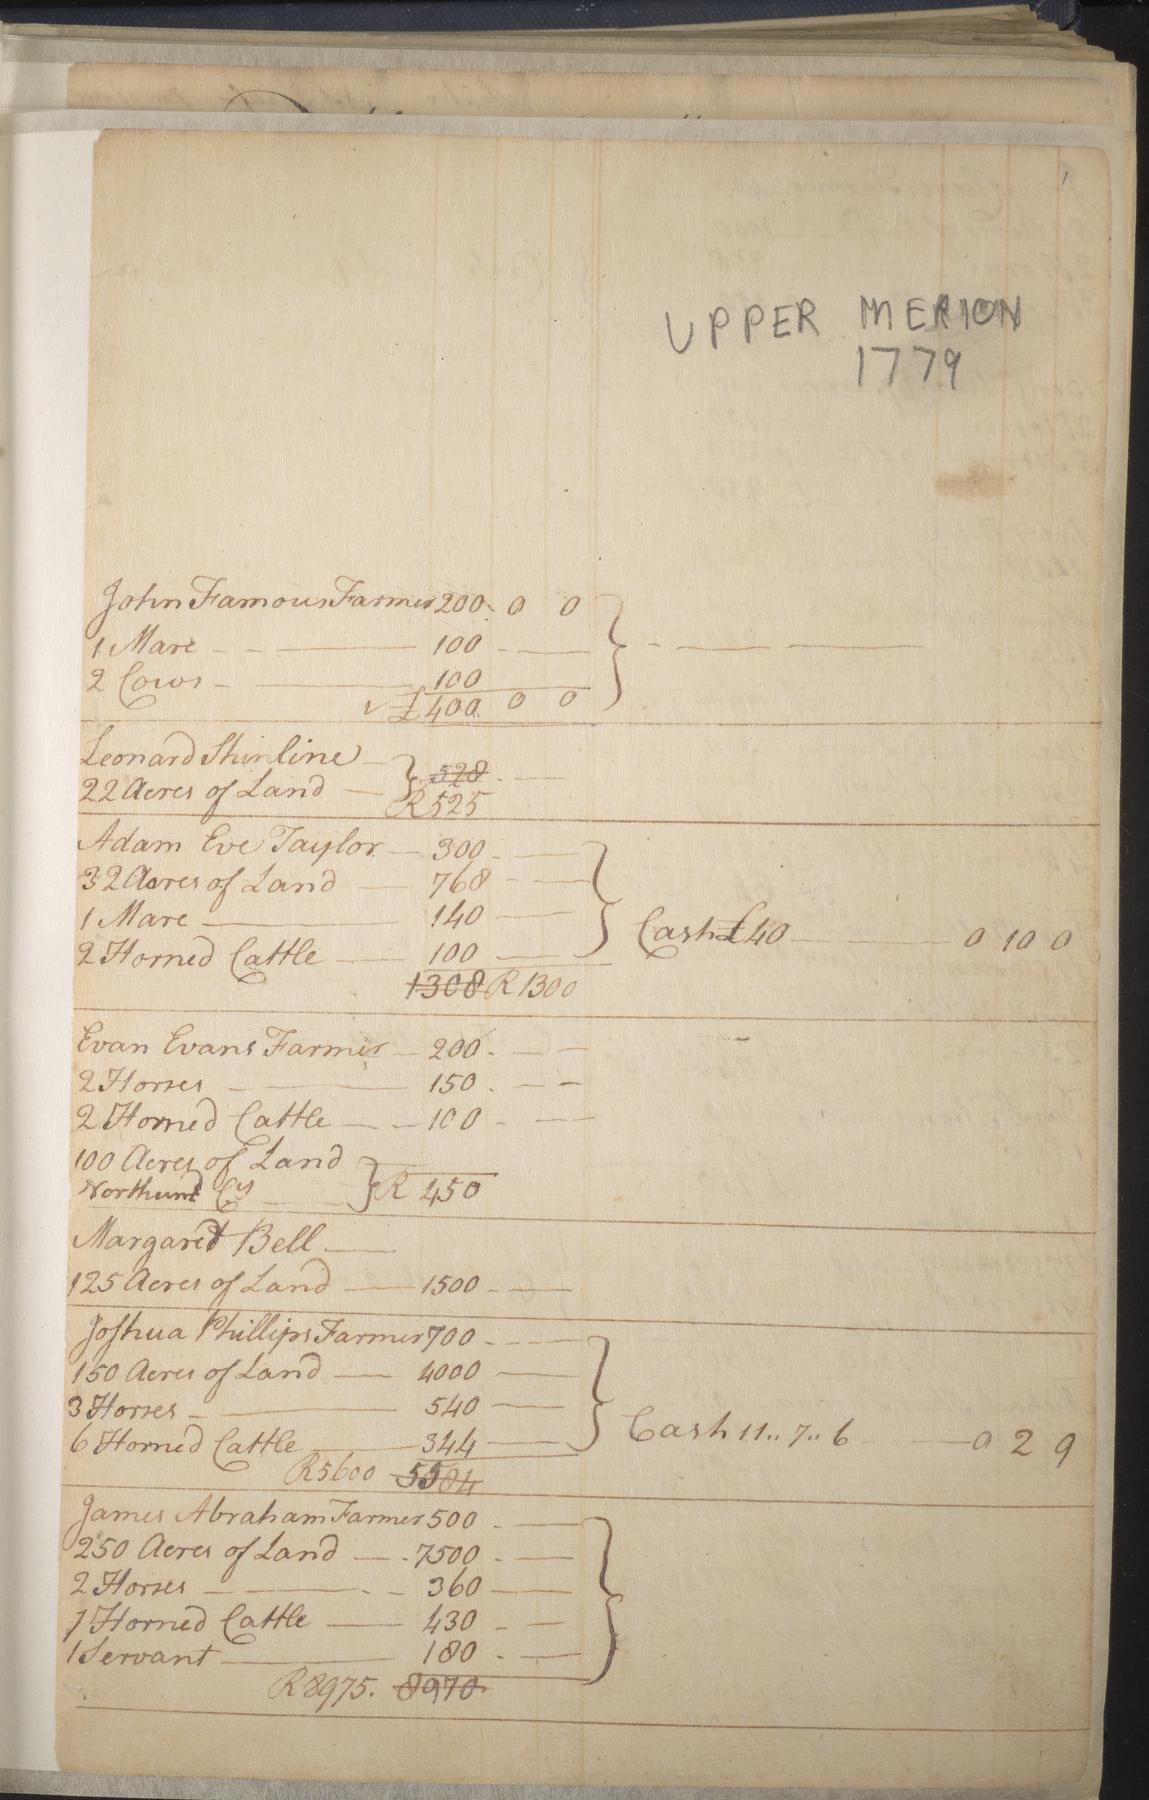 UPPER MERION
1779
John Famous Farmer 200 0 0
1 Mare 100
2 Cows 100
£400 0 0
Leonard Shinline 528
22 Acres of Land R525
Adam Eve Taylor 300
32 Acres of Land 768
1 Mare 140
2 Horned Cattle 100
Cash £40 0 10 0
1308 R1300
Evan Evans Farmer 200
2 Horses 150
2 Horned Cattle 100
100 Acres of Land
Northumd Cy R 450
Margaret Bell
125 Acres of Land 1500
Joshua Phillips Farmer 700
150 Acres of Land 4000
3 Horses 540
6 Horned Cattle 344
Cash 11.. 7.. 6 0 2 9
R5600 5584
James Abraham Farmer 500
250 Acres of Land 7500
2 Horses 360
7 Horned Cattle 430
1 Servant 180
R8975. 8970